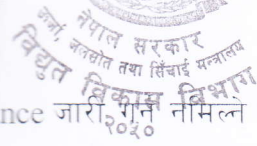 नेपाल सरकार
ऊर्जा, जलस्रोत तथा सिंचाई मन्त्रालय
विद्युत विकास विभाग
nce जारी गर्न नमिल्ने
२०५०